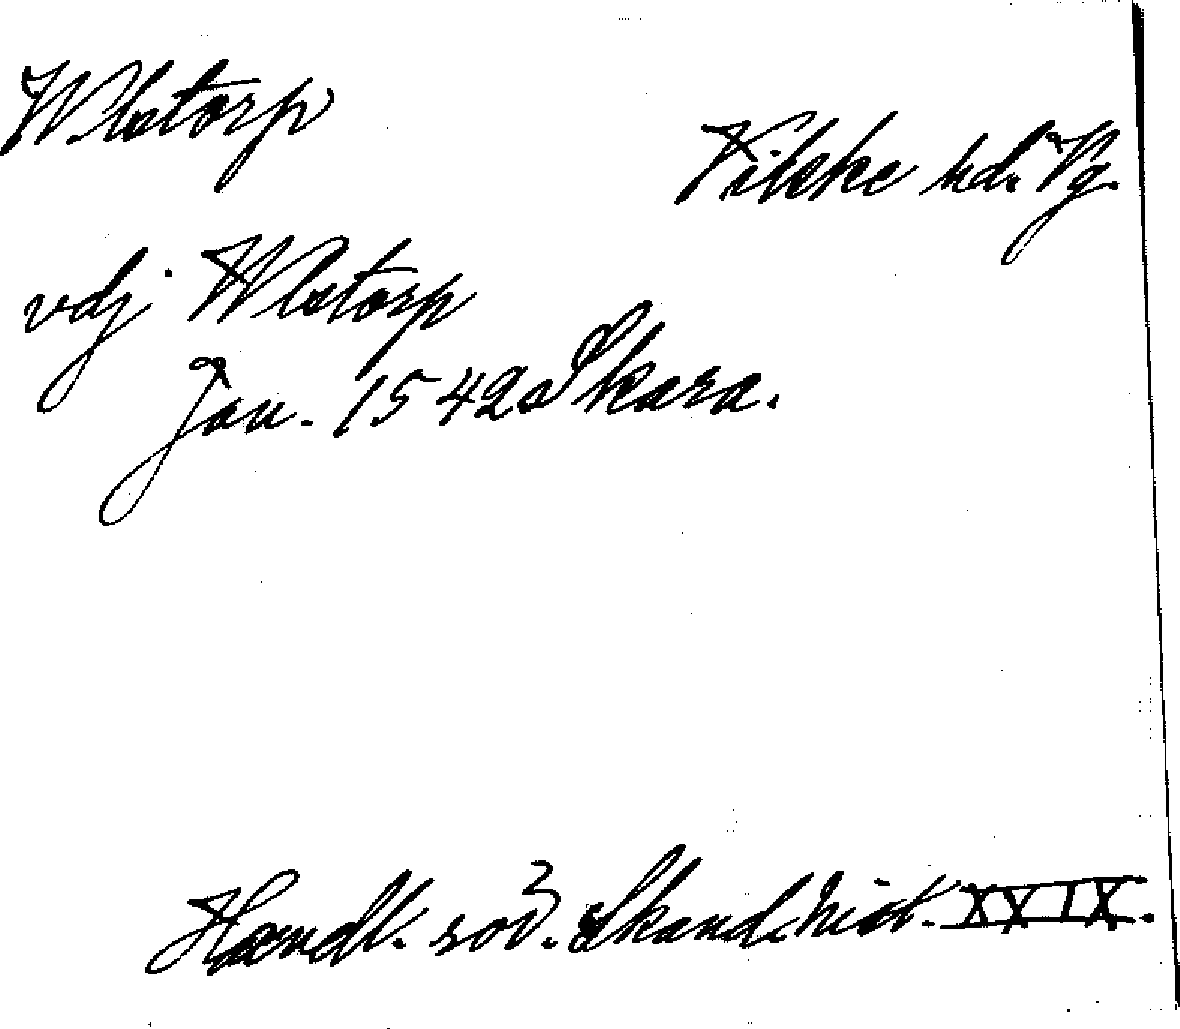 Wlstorp
Vilske hd. Vg.
vdj Wlstorp
Jan. 1542 Skara.
Handl. rör. Skand. hist. XXIX.